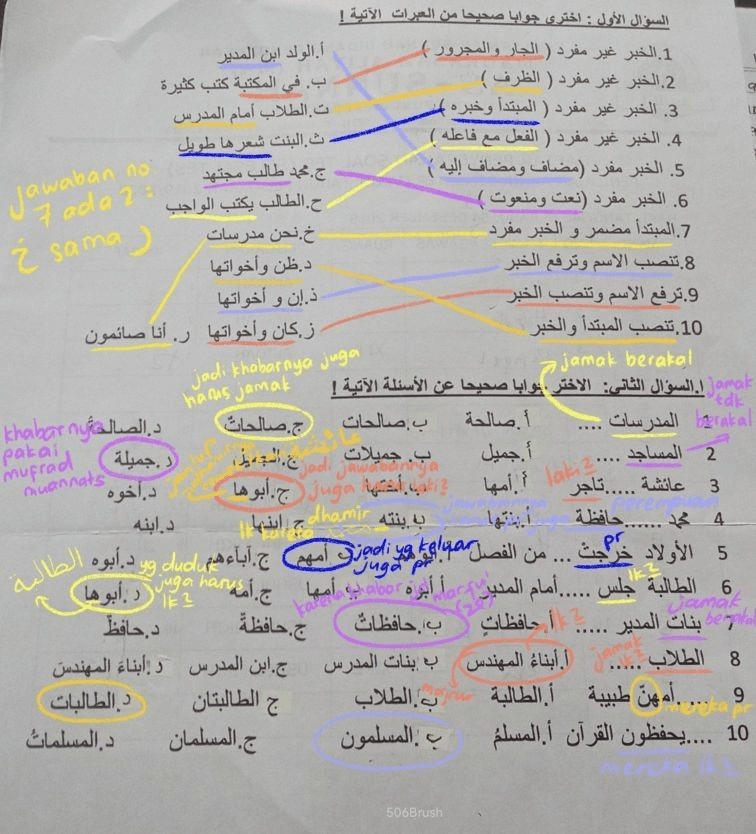 السؤال الأول : اختري جوابا صحيحا من العبرات الآتية !
1.الخبر غير مفرد ( الجار والمجرور ) أ.الولد ابن المدير
2.الخبر غير مفرد ( الظرف ) ب. في المكتبة كتب كثيرة
3. الخبر غير مفرد ( المبتدأ وخبره ) ت.الطلاب أمام المدرس
4. الخبر غير مفرد ( الفعل مع فاعله ) ث.البنت شعرها طويل
5. الخبر مفرد (مضاف ومضاف إليه ) ج.محمد طالب مجتهد
6. الخبر مفرد (نعت ومنعوت ) ح.الطالب يكتب الواجب
7.المبتدأ مضمر و الخبر مفرد خ.نحن مدرسات
8.تنصب الاسم وترفع الخبر د.ظن وأخواتها
9.ترفع الاسم وتنصب الخبر ذ.إن و أخواتها
10.تنصب المبتدأ والخبر ز.كان وأخواتها ر. أنا صائمون
jawaban no
7 ada 2 :
( sama )
jamak berakal
jadi khabarnya juga
harus jamak
ا.السؤال الثاني: الاختر جوابا صحيحا عن الأسئلة الآتية !
jamak
tdk
berakal
المدرسات .... أ.صالحة ب.صالحات ج.صالحاتٌ د.الصالحةُ
khabarnya
pakai
mufrad
muannats
2 المساجد .... أ.جميل ب. جميلات د.جميلة
laki2
jadi jawabannya
juga harus laki2
3 عائشة ....تاجر أ.أمها ج.أبوها د.أخوه
perempuan
dhamir
lk karena
4 محمد ......حافظة أ.بنتها ب.بنته ج.ابنها د.ابنه
pr
jadi yg keluar
juga pr
5 الأولاد خرجتْ ... من الفصل ب.أمهم ج.آباءهم د.أبوه
الطالبة
yg duduk
juga harus
lk2
lk2
6 الطالبة جلس .....أمام المدير ب.أمها ج.أمه د.أبوها
karena khabar jd marfu'
jamak
berakal
7 بنات المدير ..... أ.حافظاتٍ ب.حافظاتٌ ج.حافظةٌ د.حافظٌ
lk2
jamak
lk2
8 الطلاب ..... أ.أبناءُ المهندس ب بنات المدرس ج.ابن المدرس د.أبناءَ المهندسَ
majrur
mereka pr
9 ....أمهنّ طبيبة أ.الطالبة ب.الطلاب ج الطالبتان د.الطالبات
10 ....يحفظون القرآن أ.المسلمُ ب.المسلمون ج.المسلمان د.المسلماتُ
mereka lk2
506Brush